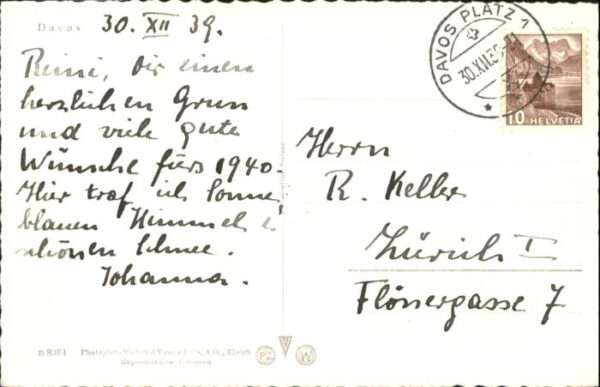 Davos 30. XII 39.
Reini, Dir einen
herzlichen Gruss
und viele gute
Wünsche fürs 1940.
Hier traf ich Sonne,
blauen Himmel &
schönen Schnee.
Johanna.
DAVOS PLATZ 1
30.XII.39
10 HELVETIA
Herrn
R. Keller
Zürich I
Flössergasse 7
Zürich